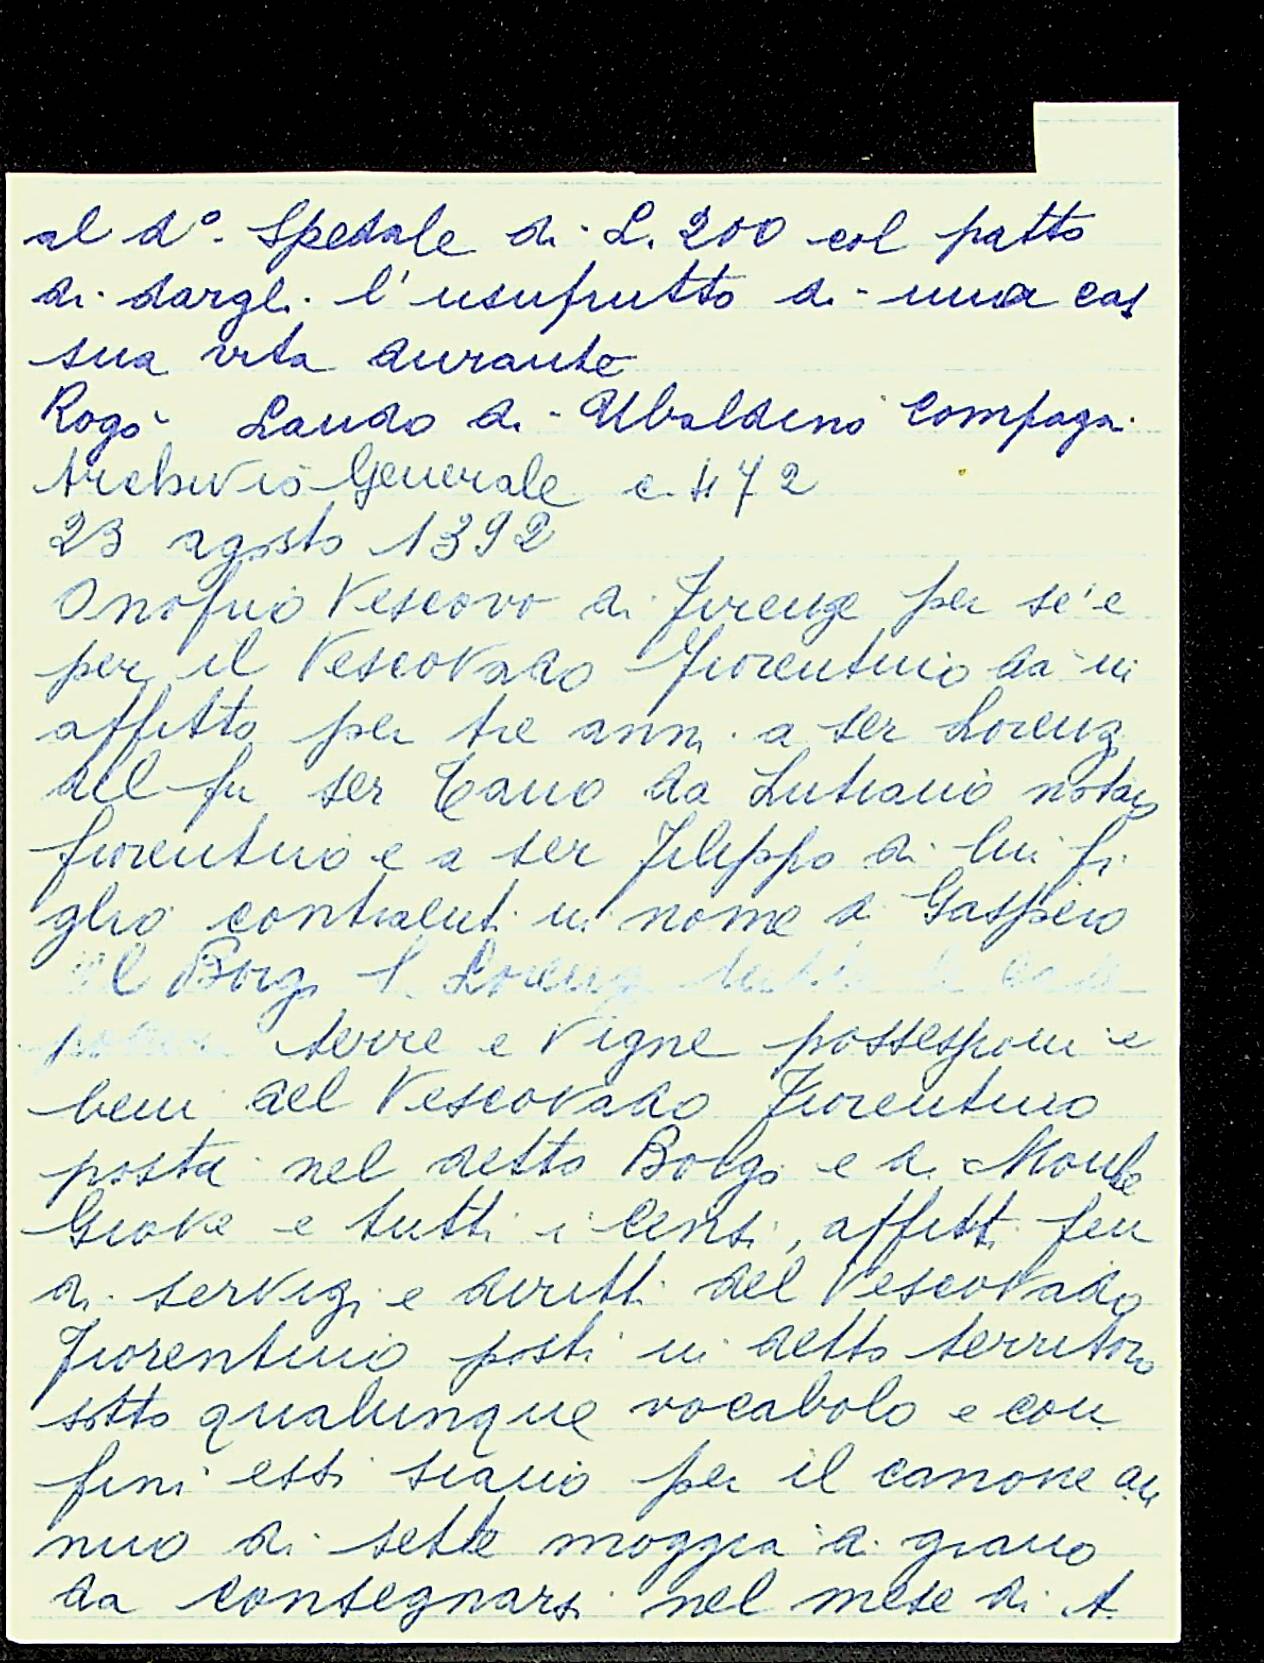 al d°. Spedale di L. 200 col patto
di dargli l'usufrutto di una cas
sua vita durante
Rogò Lando di Ubaldino Compagni
Archivio Generale c. 472
23 agosto 1392
Onofrio Vescovo di Firenze per sé e
per il Vescovado Fiorentino dà in
affitto per tre anni a ser Lorenz
del fu ser Tano da Lutiano notaio
fiorentino e a ser Filippo di lui fi
glio contraent. in nome di Gaspero
del Borgo S. Lorenzo tutte le
terre e vigne possessioni e
beni del Vescovado Fiorentino
posta nel detto Borgo e a Monte
Giove e tutti i censi, affitti feu
di servigi e diritti del Vescovado
Fiorentino posti in detto territorio
sotto qualunque vocabolo e con
fini essi siano per il canone an
nuo di sette moggia di grano
da consegnarsi nel mese di A.